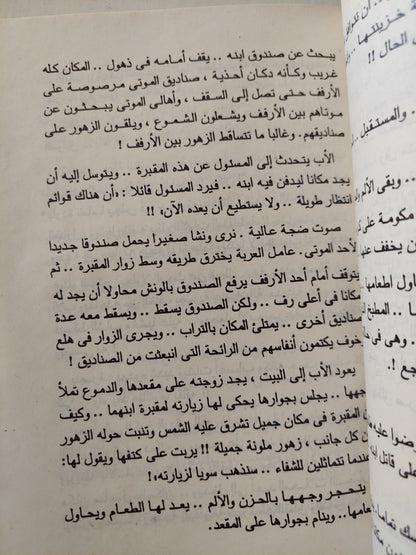 يبحث عن صندوق ابنه .. يقف أمامه فى ذهول .. المكان كله
غريب وكأنه دكان أحذية ، صناديق الموتى مرصوصة على
الأرفف حتى تصل إلى السقف ، وأهالى الموتى يبحثون عن
موتاهم بين الأرفف ويشعلون الشموع ، ويلقون الزهور على
صناديقهم . وغالبا ما تتساقط الزهور بين الأرفف !
الأب يتحدث إلى المسئول عن هذه المقبرة .. ويتوسل إليه أن
يجد مكانا ليدفن فيه ابنه .. فيرد المسئول قائلا : «أن هناك قوائم
انتظار طويلة .. ولا يستطيع أن يعده الآن»، !!
صوت ضجة عالية . نرى ونشا صغيرا يحمل صندوقا جديدا
لأحد الموتى. عامل العربة يخترق طريقه وسط زوار المقبرة .. ثم
يتوقف أمام أحد الأرفف يرفع الصندوق بالونش محاولا أن يجد له
مكانا فى أعلى رف .. ولكن الصندوق يسقط .. ويسقط معه عدة
صناديق أخرى .. يمتلئ المكان بالتراب .. ويجرى الزوار فى هلع
خوف يكتمون أنفاسهم من الرائحة التى انبعثت من الصناديق !
يعود الأب إلى البيت ، يجد زوجته على مقعدها والدموع تملأ
وجهها .. يجلس بجوارها يحكى لها زيارته لمقبرة ابنهما .. وكيف
المقبرة فى مكان جميل تشرق عليه الشمس وتنبت حوله الزهور
كل جانب ، زهور ملونة جميلة !! يربت على كتفها ويقول لها:
عندما تتماثلين للشفاء .. سنذهب سويا لزيارته»،
يتحجر وجهها بالحزن والألم .. يعد لها الطعام ويحاول
.. وينام بجوارها على المقعد.